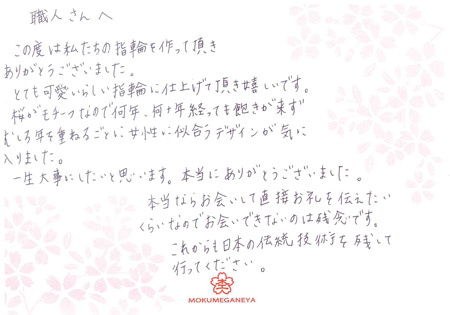 職人さんへ
この度は私たちの指輪を作って頂き
ありがとうございました。
とても可愛いらしい指輪に仕上げて頂き嬉しいです。
桜がモチーフなので何年、何十年経っても飽きが来ず
むしろ年を重ねるごとに女性に似合うデザインが気に
入りました。
一生大事にしたいと思います。本当にありがとうございました。
本当ならお会いして直接お礼を伝えたい
くらいなのでお会いできないのは残念です。
これからも日本の伝統技術を残して
行ってください。
MOKUMEGANEYA